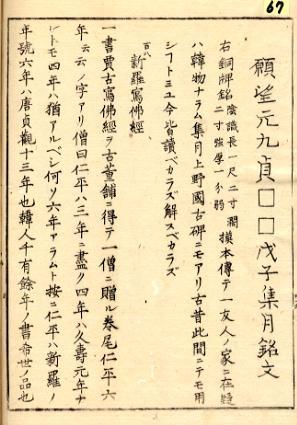 67
願望元九貞□□戊子集月銘文
右銅牌銘 陰識長一尺二寸濶二寸強厚一分弱 摸本傳テ一友人ノ家ニ在疑
ハ韓物ナラム集月上野國古碑ニモアリ古昔此間ニテモ用
シフトミユ今皆讀ベカラズ解スベカラズ
百八 新羅寫佛經
一書賈古寫佛經ヲ古董舗ニ得テ一僧ニ贈ル卷尾仁平六
年云云ノ字アリ僧曰仁平ハ三年ニ盡ク四年ハ久壽元年ナ
レトモ四年ハ猶アルベシ何ソ六年アラムト按ニ仁平ハ新羅ノ
年號六年ハ唐貞觀十三年也韓人千有餘年ノ書希世ノ品也